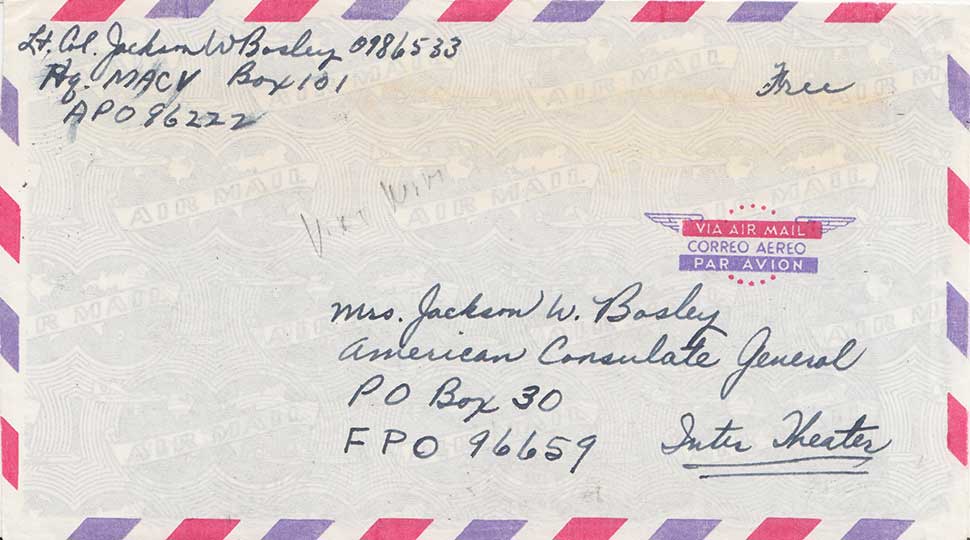 Lt. Col. Jackson W Bosley 0986533
Hq. MACV Box 101
APO 96222
Free
VIA AIR MAIL
CORREO AEREO
PAR AVION
Mrs. Jackson W. Bosley
American Consulate General
PO Box 30
FPO 96659
Inter Theater
AIR MAIL
AIR MAIL
AIR MAIL
AIR MAIL